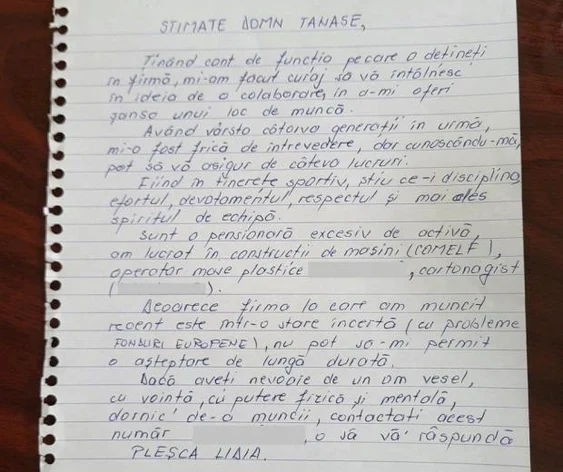 STIMATE DOMN TANASE,
Ținând cont de funcția pe care o dețineți
în firmă, mi-am făcut curaj să vă întâlnesc
în ideia de o colaborare, în a-mi oferi
șansa unui loc de muncă.
Având vârsta câtorva generații în urmă,
mi-a fost frică de întrevedere, dar cunoscându-mă,
pot să vă asigur de câteva lucruri.
Fiind în tinerețe sportiv, știu ce-i disciplina
efortul, devotamentul, respectul și mai ales
spiritul de echipă.
Sunt o pensionară excesiv de activă,
am lucrat în construcții de mașini (COMELF),
operator mase plastice , cartonagist
( ).
Deoarece firma la care am muncit
recent este într-o stare incertă (cu probleme
FONDURI EUROPENE), nu pot să-mi permit
o așteptare de lungă durată.
Dacă aveți nevoaie de un om vesel,
cu voință, cu putere fizică și mentală,
dornic de-a muncii, contactați acest
număr , o să vă răspundă
PLEȘCA LIDIA.